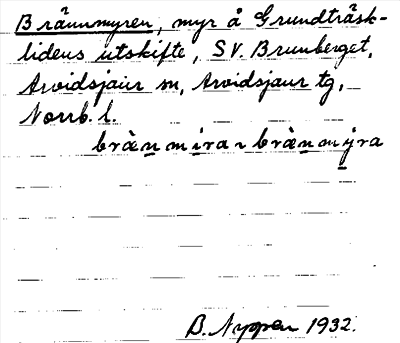 Brännmyren, myr å Grundträsk-
lidens utskifte, SV. Brunberget,
Arvidsjaur sn, Arvidsjaur tg,
Norrb. l.
bræ̀n mìran bræ̀nmýra
B. Nyppen 1932.